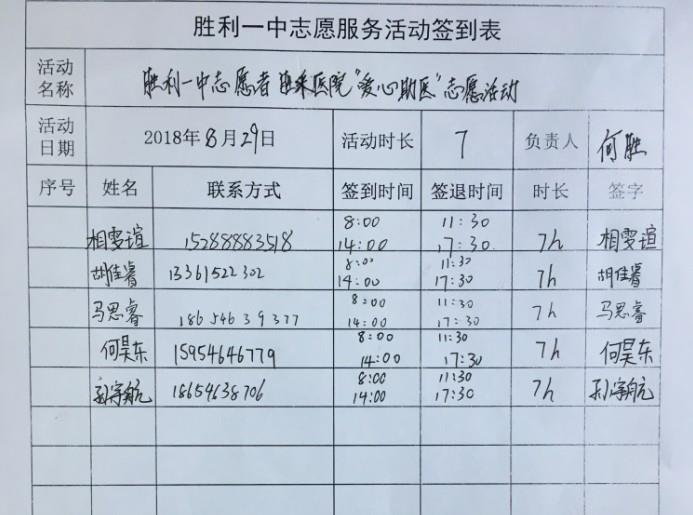 胜利一中志愿服务活动签到表
活动名称 胜利一中志愿者 医院"爱心助医"志愿活动
活动日期 2018年8月29日 活动时长 7 负责人 何胜
序号 姓名 联系方式 签到时间 签退时间 时长 签字
相雯瑄 15288883518 8:00 14:00 11:30 17:30 7h 相雯瑄
胡佳睿 13361522302 8:00 14:00 11:30 17:30 7h 胡佳睿
马思睿 18654639377 8:00 14:00 11:30 17:30 7h 马思睿
何昊东 15954646779 8:00 14:00 11:30 17:30 7h 何昊东
孙宇航 18654638706 8:00 14:00 11:30 17:30 7h 孙宇航